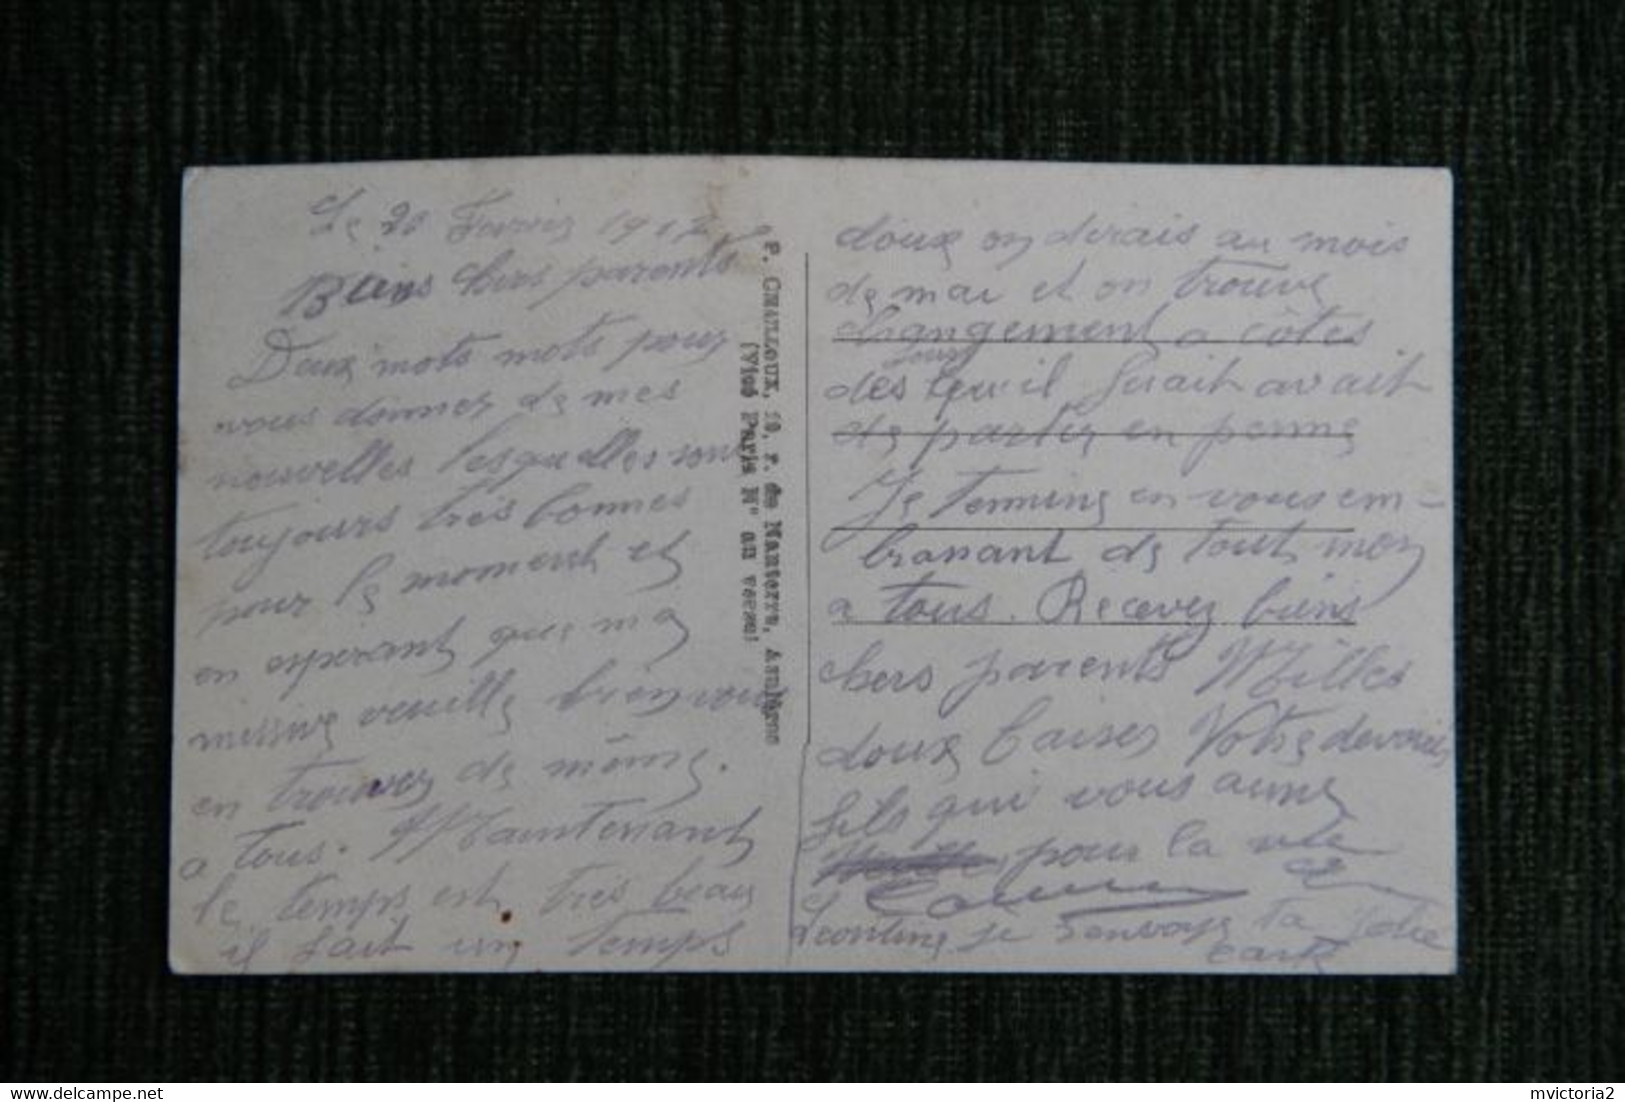 Le 20 Fevrier 1917
Biens chers parents
Deux mots mots pour
vous donner de mes
nouvelles lesquelles sont
toujours très bonnes
pour le moment et
en esperant que ma
missive veuille bien vous
en trouver de même.
a tous. Maintenant
le temps est très beau
il fait un temps
P. CHAILLOUX, 19, r. de Nanterre, Asnières
(Visé Paris N° au verso)
doux on dirais au mois
de mai et on trouve
changement a côtes
jours
des qu'il fesait avait
de partir en perme
Je termine en vous em-
brassant de tout mon
a tous. Recevez biens
chers parents Milles
doux baiser Votre devoués
fils qui vous aime
pour la vie
Leontine je t'envoye ta jolie
carte
mvictoria2